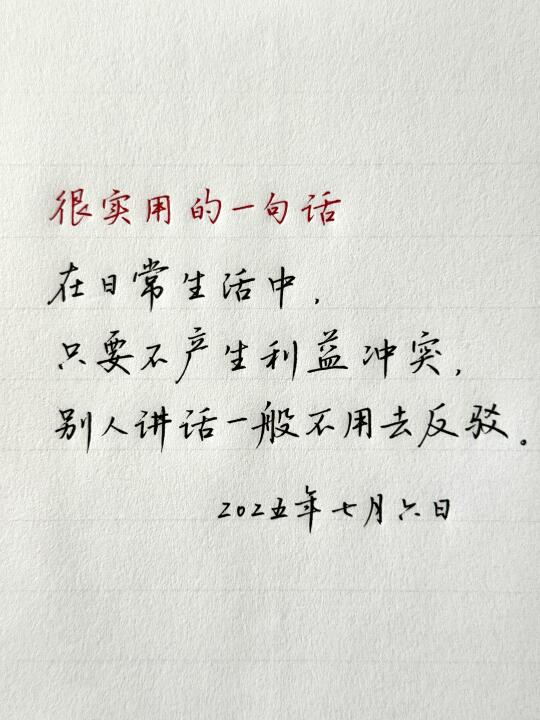 很实用的一句话
在日常生活中，
只要不产生利益冲突，
别人讲话一般不用去反驳。
2025年七月六日